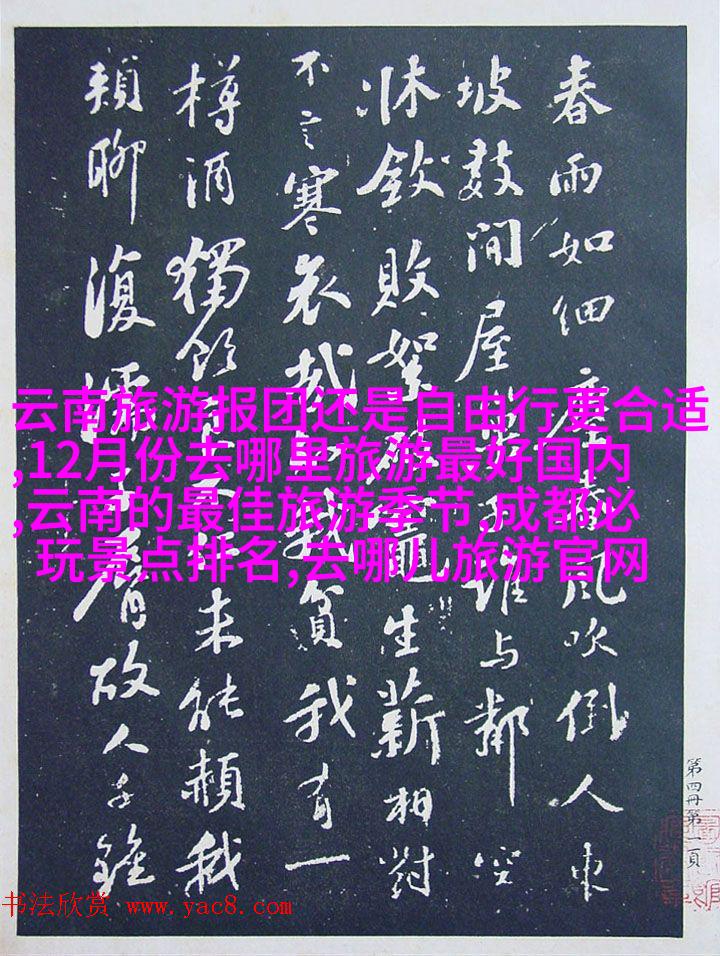 春雨如細塵風吹倒人東
坡数間屋誰與鄰空
牀斂敗絮破竈生薪相對
不言寒哀哉我貧我有一
樽酒獨飲未能頳我
頰聊復濡脣故人千鍾
第四冊第一頁
云南旅游报团还是自由行更合适
,12月份去哪里旅游最好国内
,云南的最佳旅游季节,成都必
玩景点排名,去哪儿旅游官网
书法欣赏 www.yac8.com